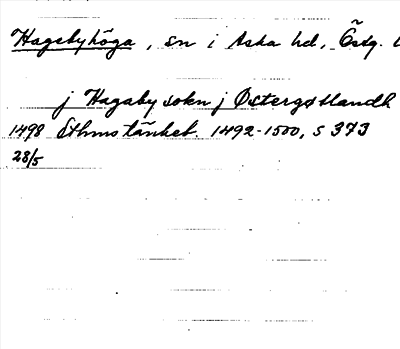 Hagebyhöga, sn i Aska hd, Östg.
j Hagaby sokn j Østergøtlandh
1498 Sthms tänkeb. 1492-1500, s 373
28/5